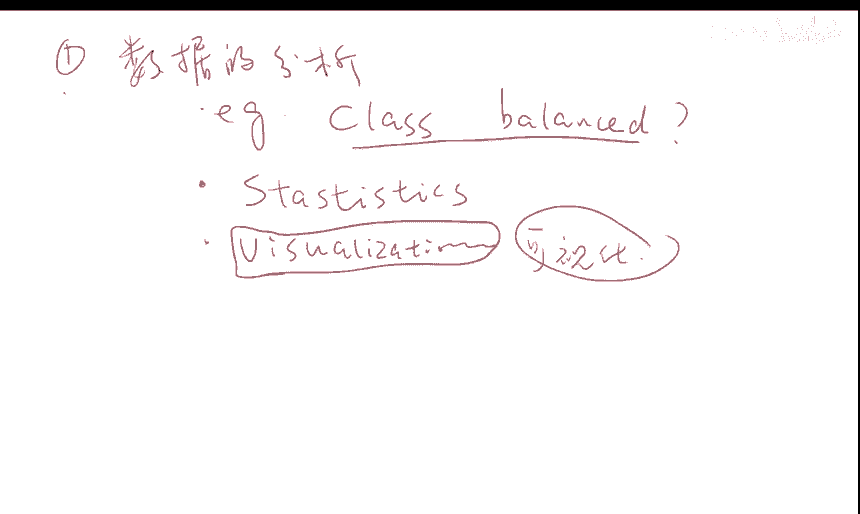 ① 数据的分析
· eg. Class balanced ?
· Stastistics
· Visualization 可视化.